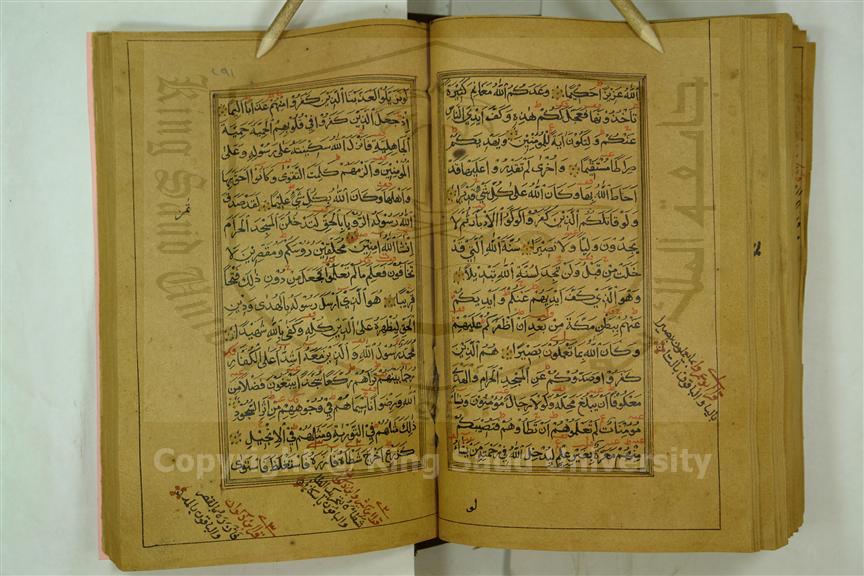 الله عزيزا حكيما وعدكم الله مغانم كثيرة
تأخذونها فعجل لكم هذه وكف أيدي الناس
عنكم ولتكون آية للمؤمنين ويهديكم
صراطا مستقيما وأخرى لم تقدروا عليها قد
أحاط الله بها وكان الله على كل شيء قديرا
ولو قاتلكم الذين كفروا لولوا الأدبار ثم لا
يجدون وليا ولا نصيرا سنة الله التي قد
خلت من قبل ولن تجد لسنة الله تبديلا
وهو الذي كف أيديهم عنكم وأيديكم
عنهم ببطن مكة من بعد أن أظفركم عليهم
وكان الله بما تعملون بصيرا هم الذين
كفروا وصدوكم عن المسجد الحرام والهدي
معكوفا أن يبلغ محله ولولا رجال مؤمنون ونساء
مؤمنات لم تعلموهم أن تطأوهم فتصيبكم
منهم معرة بغير علم ليدخل الله في رحمته من يشاء
لو
بالياء والباقون بالتاء
٢٩١
لو تزيلوا لعذبنا الذين كفروا منهم عذابا أليما
إذ جعل الذين كفروا في قلوبهم الحمية حمية
الجاهلية فأنزل الله سكينته على رسوله وعلى
المؤمنين وألزمهم كلمة التقوى وكانوا أحق بها
وأهلها وكان الله بكل شيء عليما لقد صدق
الله رسوله الرؤيا بالحق لتدخلن المسجد الحرام
إن شاء الله آمنين محلقين رؤسكم ومقصرين لا
تخافون فعلم ما لم تعلموا فجعل من دون ذلك فتحا
قريبا هو الذي أرسل رسوله بالهدى ودين
الحق ليظهره على الدين كله وكفى بالله شهيدا
محمد رسول الله والذين معه أشداء على الكفار
رحماء بينهم تراهم ركعا سجدا يبتغون فضلا من
الله ورضوانا سيماهم في وجوههم من أثر السجود
ذلك مثلهم في التورية ومثلهم في الإنجيل
كزرع أخرج شطأه فآزره فاستغلظ فاستوى
والباقون بالمد
Copyright © King Saud University
King Saud University
جامعة الملك